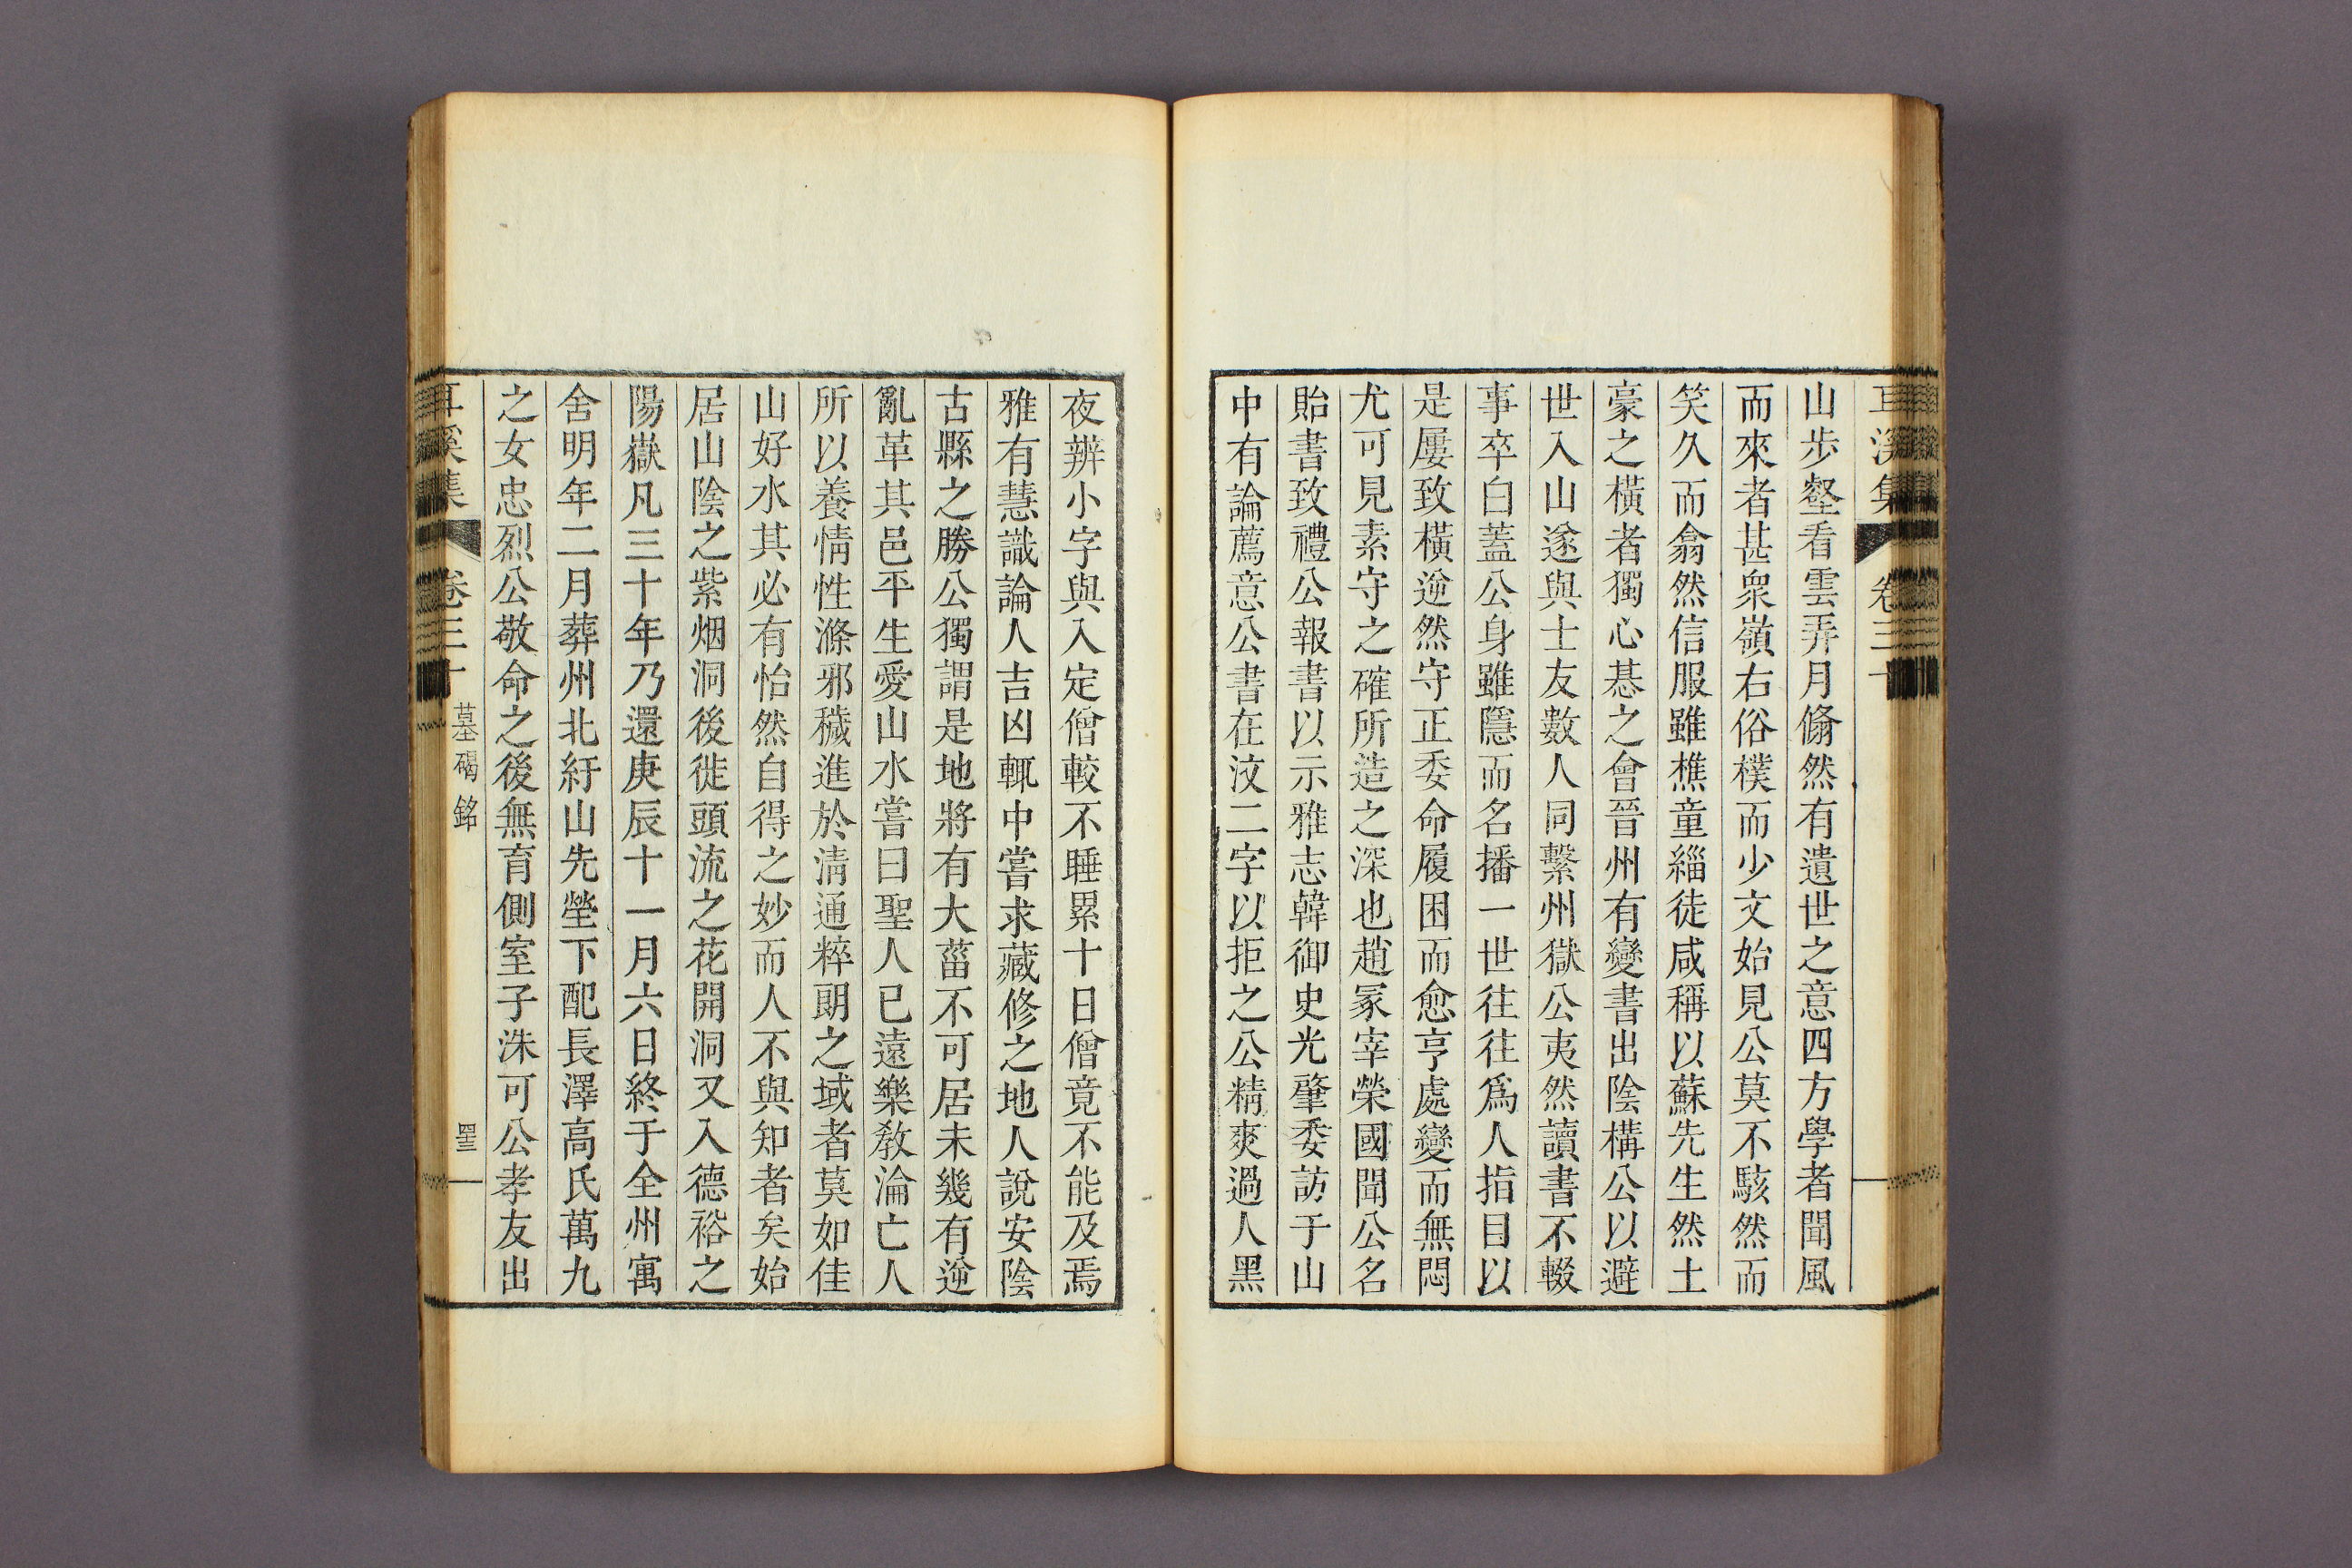 耳溪集 卷三十
山步壑看雲弄月翛然有遺世之意四方學者聞風
而來者甚衆嶺右俗樸而少文始見公莫不駭然而
笑久而翕然信服雖樵童緇徒咸稱以蘇先生然土
豪之橫者獨心惎之會晉州有變書出陰構公以避
世入山遂與士友數人同繫州獄公夷然讀書不輟
事卒白蓋公身雖隱而名播一世往往爲人指目以
是屢致橫逆然守正委命履困而愈亨處變而無悶
尤可見素守之確所造之深也趙冢宰榮國聞公名
貽書致禮公報書以示雅志韓御史光肇委訪于山
中有論薦意公書在汶二字以拒之公精爽過人黑
夜辨小字與入定僧較不睡累十日僧竟不能及焉
雅有慧識論人吉凶輒中嘗求藏修之地人說安陰
古縣之勝公獨謂是地將有大菑不可居未幾有逆
亂革其邑平生愛山水嘗曰聖人已遠樂教淪亡人
所以養情性滌邪穢進於淸通粹朗之域者莫如佳
山好水其必有怡然自得之妙而人不與知者矣始
居山陰之紫烟洞後徙頭流之花開洞又入德裕之
陽嶽凡三十年乃還庚辰十一月六日終于全州寓
舍明年二月葬州北紆山先塋下配長澤高氏萬九
之女忠烈公敬命之後無育側室子洙可公孝友出
耳溪集 卷三十 墓碣銘 四三